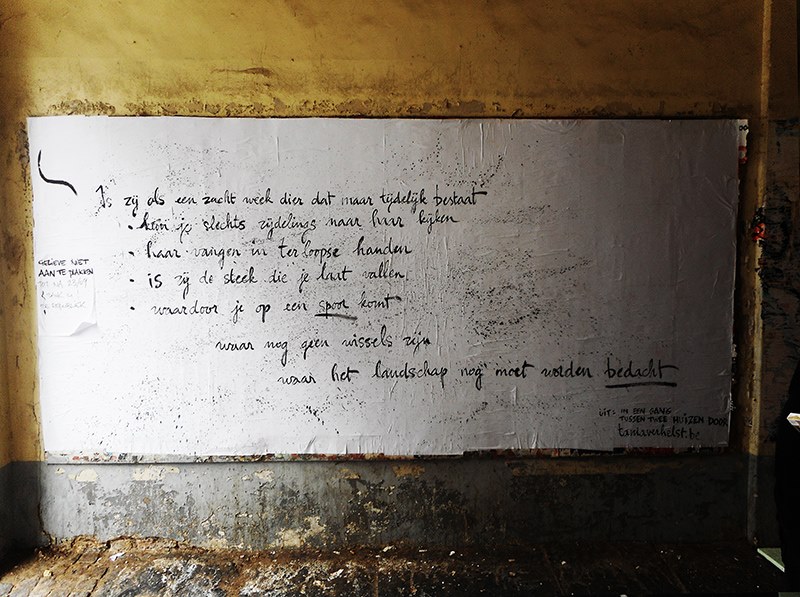 Is zij als een zacht week dier dat maar tijdelijk bestaat
• kan je slechts zijdelings naar haar kijken
• haar vangen in terloopse handen
• is zij de steek die je laat vallen
• waardoor je op een spoor komt
waar nog geen wissels zijn
waar het landschap nog moet worden bedacht
GELIEVE NIET
AAN TE PLAKKEN
UIT: IN EEN GANG
TUSSEN TWEE HUIZEN DOOR
taniaverhelst.be